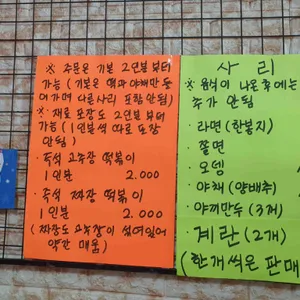 ※ 주문은 기본 2인분 부터
가능 (기본은 떡과 야채만 들
어가며 다른사리 포함 안됨)
※ 재료 포장도 2인분 부터
가능 (1인분씩 따로 포장
안됨)
· 즉석 고추장 떡볶이
1인분 2.000
· 즉석 짜장 떡볶이
1인분 2.000
(짜장도 고추장이 섞여있어
약간 매움)
사리
※ 음식이 나온 후에는
추가 안됨
· 라면 (한봉지)
· 쫄면
· 오뎅
· 야채 (양배추)
· 야끼만두 (3개)
· 계란 (2개)
(한개씩은 판매